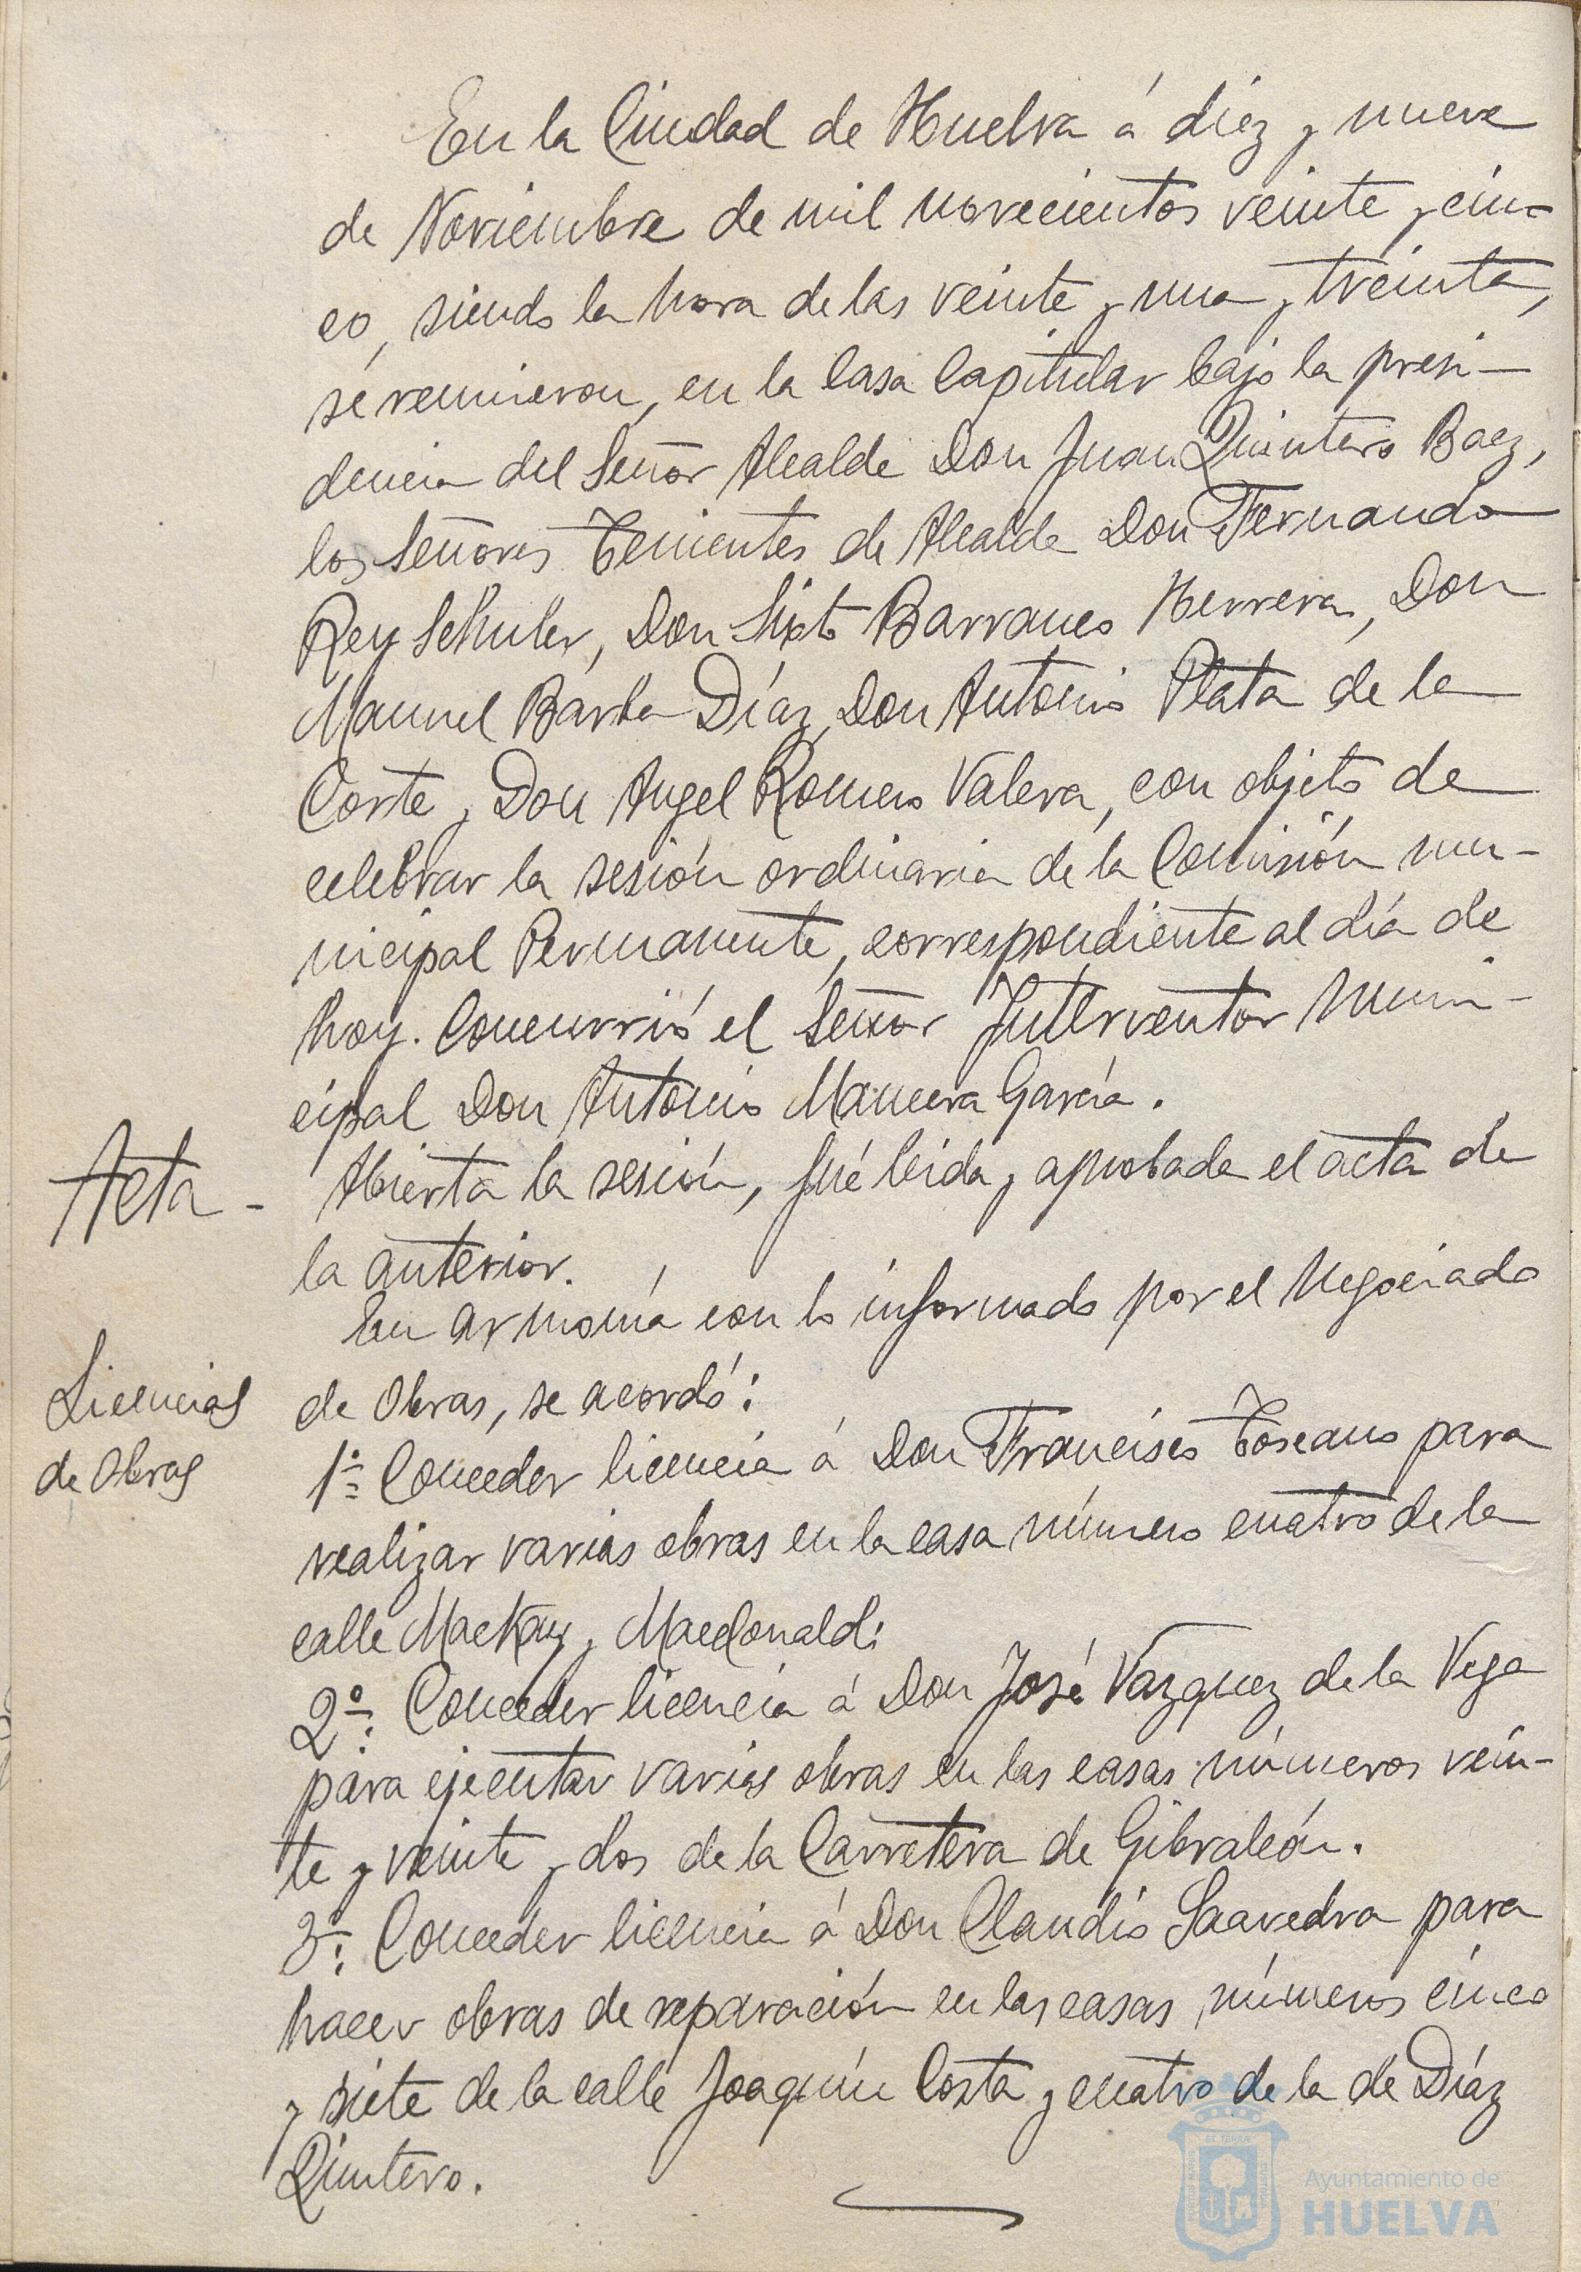 En la Ciudad de Huelva á diez y nueve
de Noviembre de mil novecientos veinte y cin-
co, siendo la hora de las veinte y una y treinta,
se reunieron, en la Casa Capitular bajo la presi-
dencia del Señor Alcalde Don Juan Quintero Baez,
los Señores Tenientes de Alcalde Don Fernando
Rey Schuler, Don Sixto Barranco Herrera, Don
Manuel Barba Díaz, Don Antonio Plata de la
Corte y Don Angel Romero Valera, con objeto de
celebrar la sesión ordinaria de la Comisión mu-
nicipal Permanente, correspondiente al día de
hoy. Concurrió el Señor Interventor Muni-
cipal Don Antonio Mancera García.
Acta -
Abierta la sesión, fué leida y aprobada el acta de
la anterior.
En armonía con lo informado por el Negociado
Licencias
de Obras
de Obras, se acordó:
1º Conceder licencia á Don Francisco Toscano para
realizar varias obras en la casa número cuatro de la
calle Mackay y Macdonald:
2º: Conceder licencia á Don José Vazquez de la Vega
para ejecutar varias obras en las casas números vein-
te y veinte y dos de la Carretera de Gibraleón.
3º: Conceder licencia á Don Claudio Saavedra para
hacer obras de reparación en las casas números cinco
y siete de la calle Joaquín Costa y cuatro de la de Díaz
Quintero.
Ayuntamiento de
HUELVA